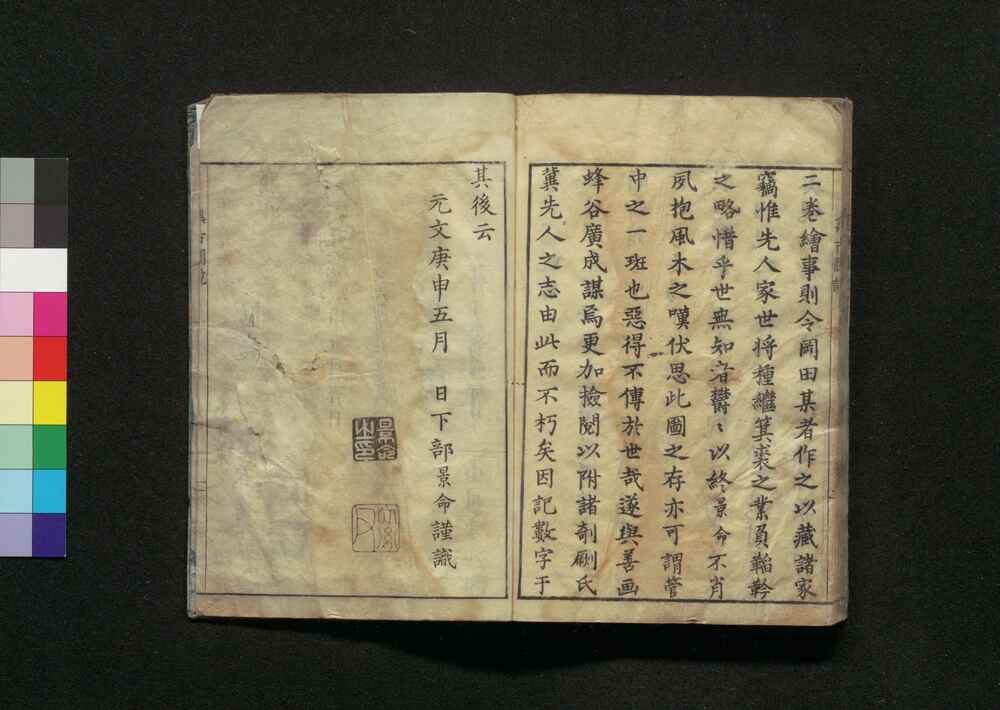 二卷繪事則令岡田某者作之以藏諸家
竊惟先人家世将種繼箕裘之業負韜鈐
之略惜乎世無知者鬱〻以終景命不肖
夙抱風木之嘆伏思此圖之存亦可謂管
中之一班也惡得不傳於世哉遂與善画
蜂谷廣成謀焉更加撿閱以附諸剞劂氏
冀先人之志由此而不朽矣因記數字于
其後云
元文庚申五月　日下部景命謹識